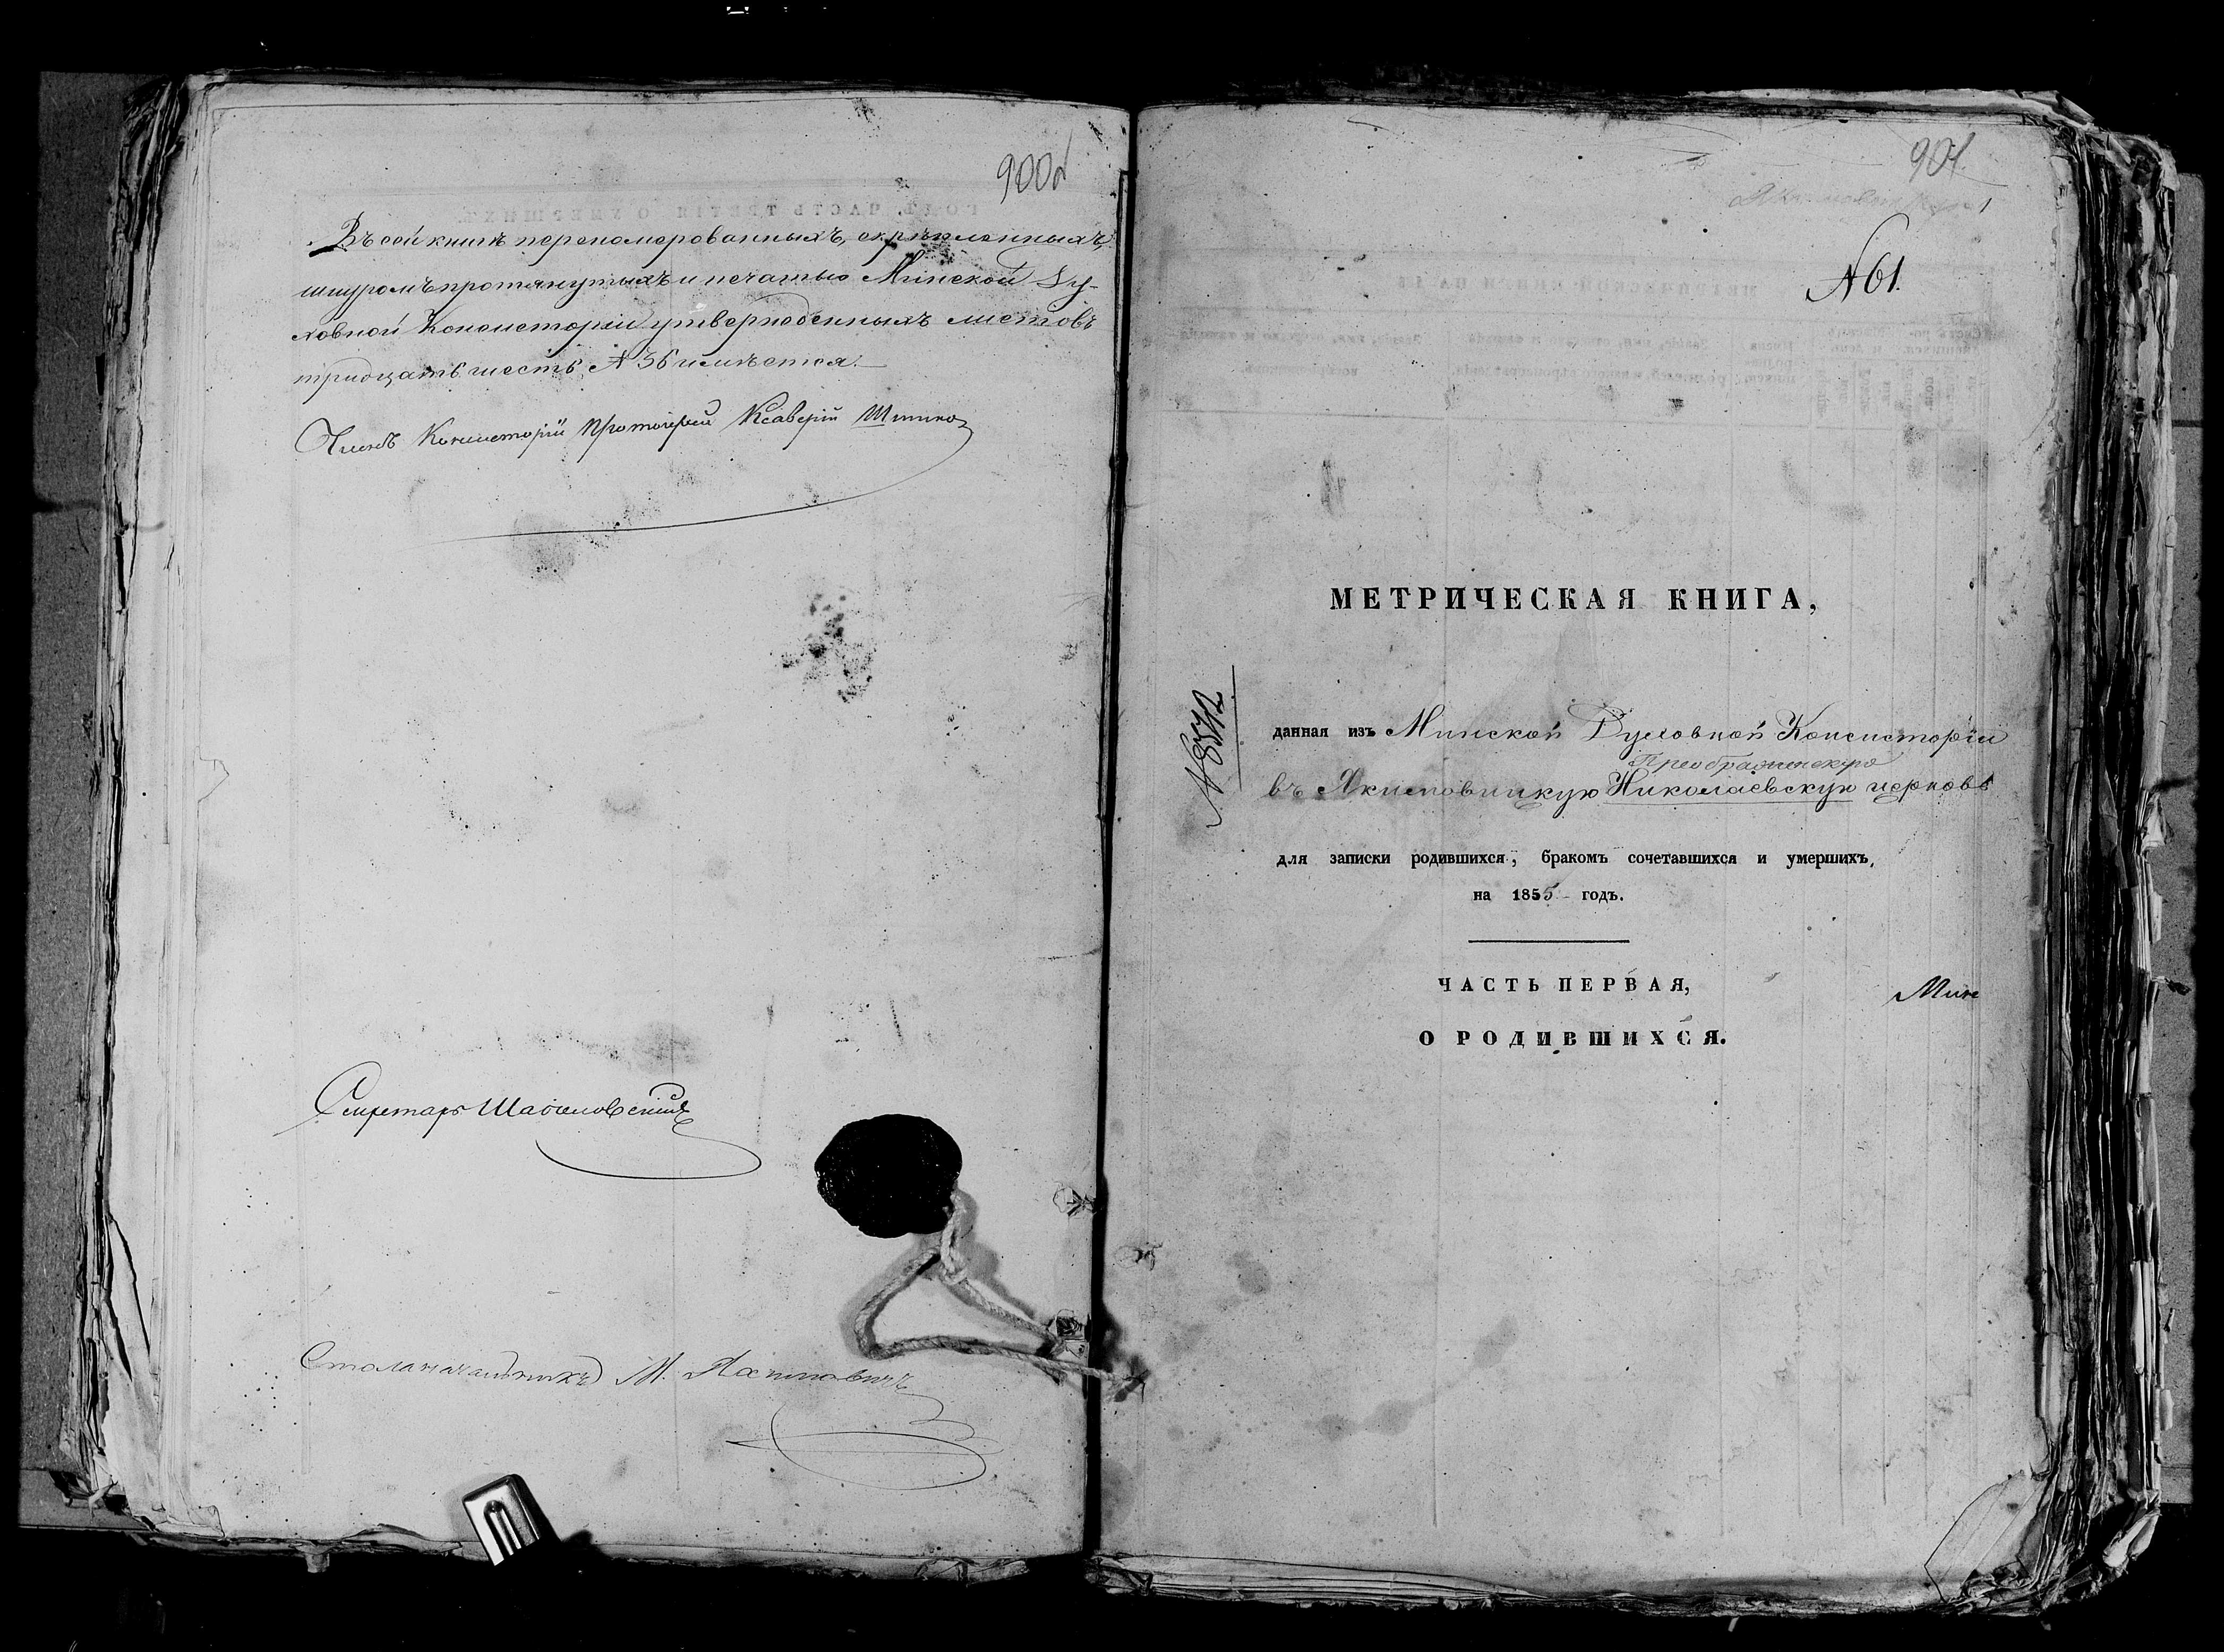 900об
Въ сей книгѣ перепомерованныхъ, скрѣпленныхъ,
шнуромъ протянутыхъ и печатью Минской Ду-
ховной Консисторіи утвержденныхъ листовъ
тридцать шесть № 36 имѣется.
Членъ Консисторіи Протоіерей Ксаверій
Секретарь
Столоначальникъ М.
901.
1
№ 61.
МЕТРИЧЕСКАЯ КНИГА,
данная изъ Минской Духовной Консисторіи
Преображенскую
въ Якимовицкую Николаевскую церковь
для записки родившихся, бракомъ сочетавшихся и умершихъ,
на 1855 годъ.
ЧАСТЬ ПЕРВАЯ,
Мин
О РОДИВШИХСЯ.